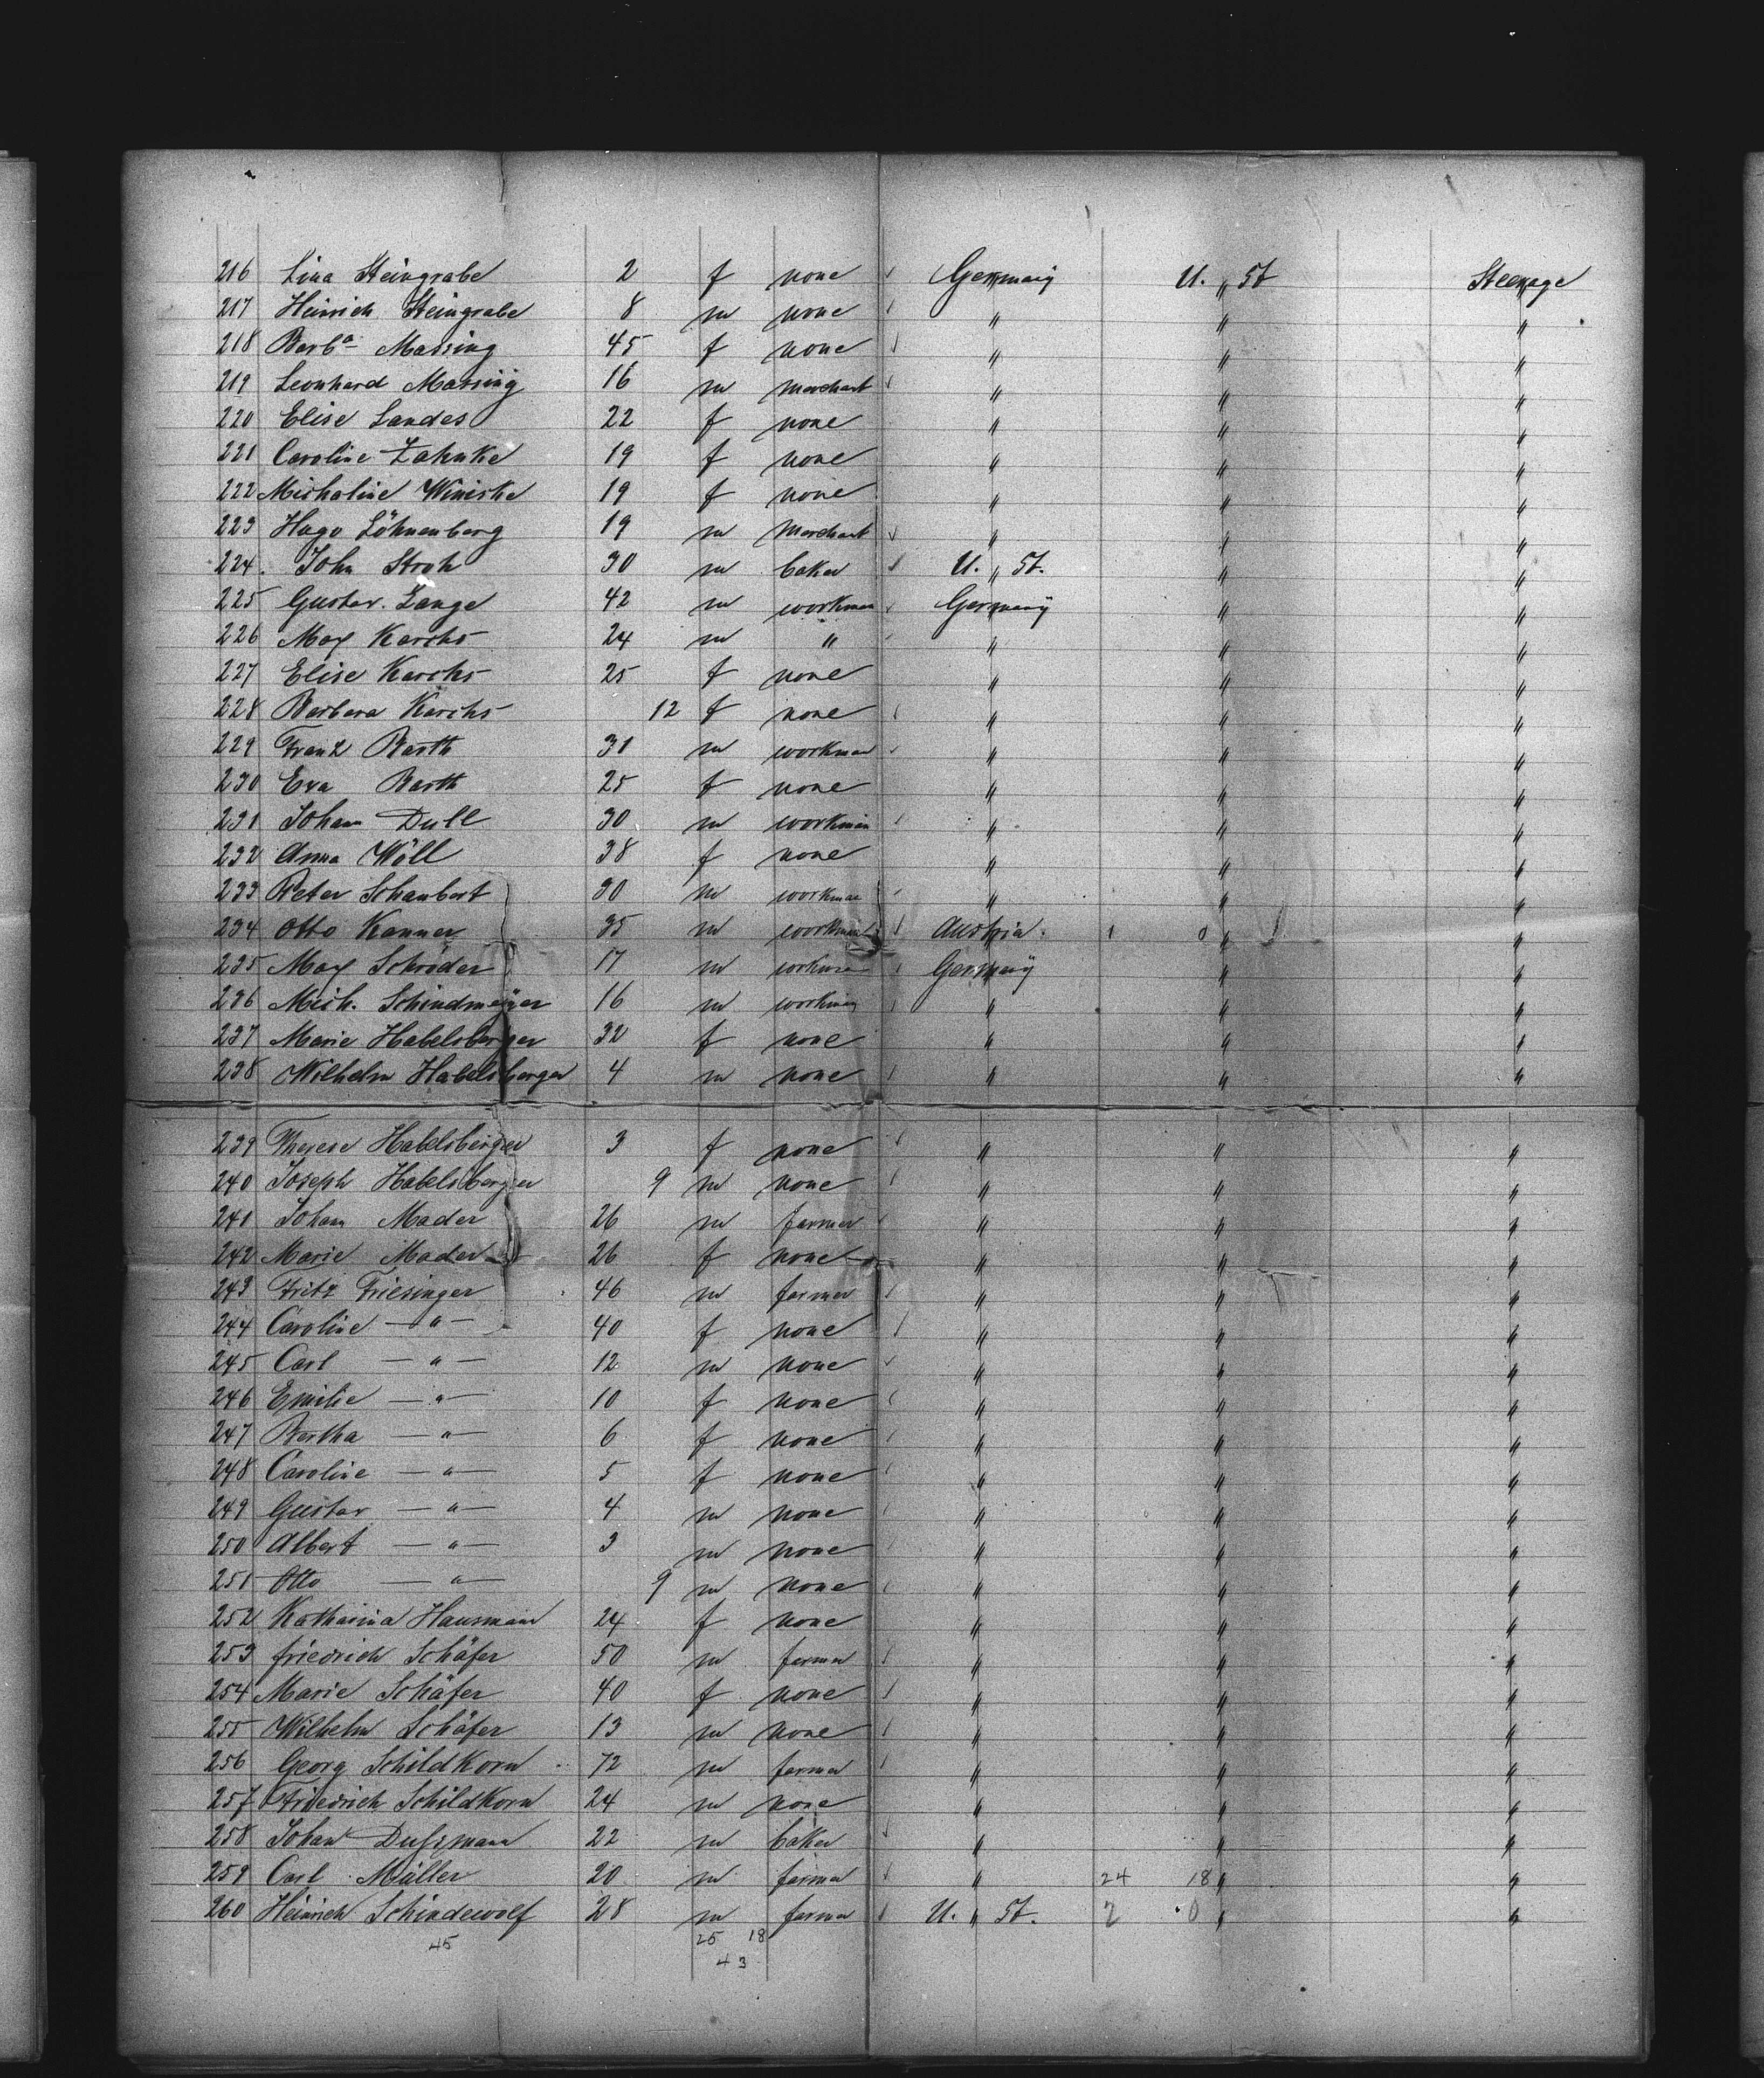 216 Lina Steingrabe 2 f none Germany U. " St Steerage
217 Heinrich Steingrabe 8 m none " " "
218 Barba Massing 45 f none " " "
219 Leonhard Massing 16 m merchant " " "
220 Elise Landes 22 f none " " "
221 Caroline Zahnke 19 f none " " "
222 Michaline Winiske 19 f none " " "
223 Hugo Löhnenberg 19 m merchant " " "
224. John Stroh 30 m baker U. " St. " "
225 Gustav. Lange 42 m workman Germany " "
226 Max Karchs 24 m " " " "
227 Elise Karchs 25 f none " " "
228 Barbara Karchs 12 f none " " "
229 Franz Barth 31 m workman " " "
230 Eva Barth 25 f none " " "
231 Johann Dull 30 m workman " " "
232 Anna Wöll 38 f none " " "
233 Peter Schaubert 30 m workman " " "
234 Otto Kanner 35 m workman Austria. 1 0 " "
235 Max Schröder 17 m workman Germany " "
236 Mich. Schindmeÿer 16 m workman " " "
237 Marie Habelsberger 32 f none " " "
238 Wilhelm Habelsberger 4 m none " " "
239 Therese Habelsberger 3 f none " " "
240 Joseph Habelsberger 9 m none " " "
241 Johann Mader 26 m farmer " " "
242 Marie Mader 26 f none " " "
243 Fritz Friesinger 46 m farmer " " "
244 Caroline — " — 40 f none " " "
245 Carl — " — 12 m none " " "
246 Emilie — " — 10 f none " " "
247 Bertha — " — 6 f none " " "
248 Caroline — " — 5 f none " " "
249 Gustav — " — 4 m none " " "
250 Albert — " — 3 m none " " "
251 Otto — " — 9 m none " " "
252 Katharina Hausmann 24 f none " " "
253 friedrich Schäfer 50 m farmer " " "
254 Marie Schäfer 40 f none " " "
255 Wilhelm Schäfer 13 m none " " "
256 Georg Schildkorn 72 m farmer " " "
257 Friedrich Schildkorn 24 m none " " "
258 Johan Dußmann 22 m baker " " "
259 Carl Müller 20 m farmer " 24 18 " "
260 Heinrich Schindewolf 28 m farmer U. " St. 2 0 " "
45 25 18
43